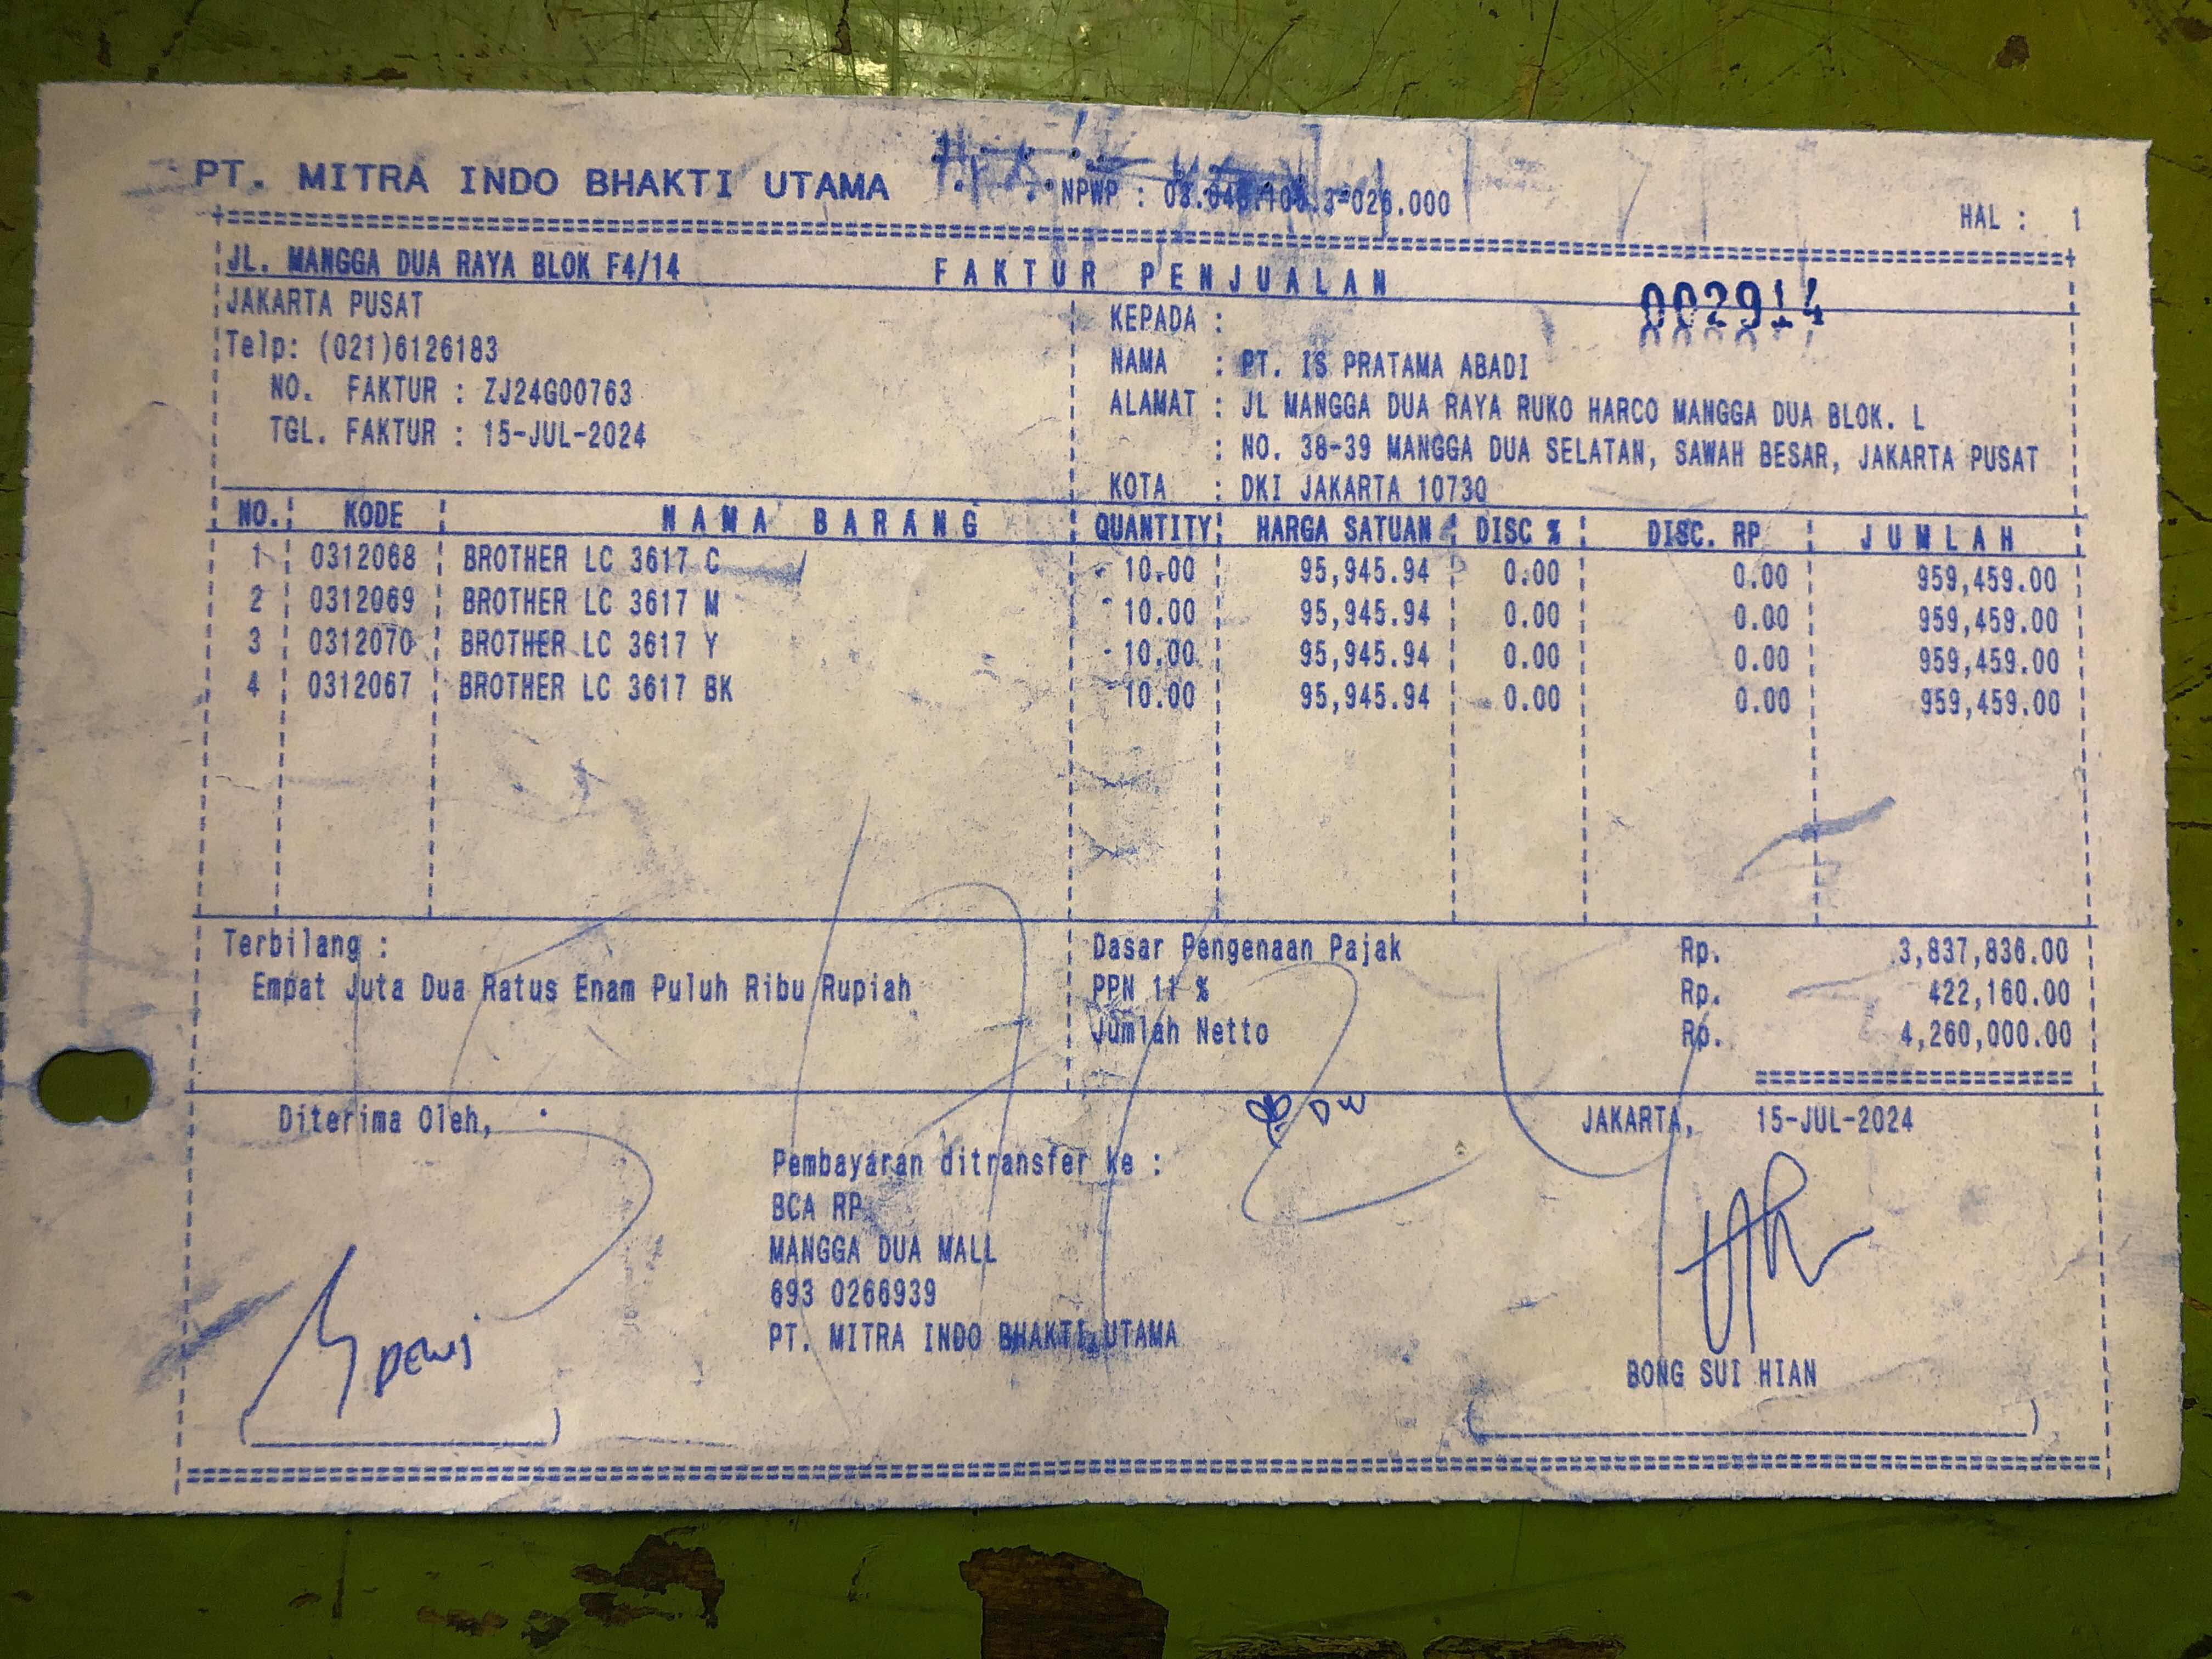 PT. MITRA INDO BHAKTI UTAMA NPWP : 026.000 HAL : 1
JL. MANGGA DUA RAYA BLOK F4/14 FAKTUR PENJUALAN 002914
JAKARTA PUSAT
Telp: (021)6126183
NO. FAKTUR : ZJ24G00763
TGL. FAKTUR : 15-JUL-2024
KEPADA :
NAMA : PT. IS PRATAMA ABADI
ALAMAT : JL MANGGA DUA RAYA RUKO HARCO MANGGA DUA BLOK. L
: NO. 38-39 MANGGA DUA SELATAN, SAWAH BESAR, JAKARTA PUSAT
KOTA : DKI JAKARTA 10730
NO. KODE NAMA BARANG QUANTITY HARGA SATUAN DISC % DISC. RP JUMLAH
1 0312068 BROTHER LC 3617 C 10.00 95,945.94 0.00 0.00 959,459.00
2 0312069 BROTHER LC 3617 M 10.00 95,945.94 0.00 0.00 959,459.00
3 0312070 BROTHER LC 3617 Y 10.00 95,945.94 0.00 0.00 959,459.00
4 0312067 BROTHER LC 3617 BK 10.00 95,945.94 0.00 0.00 959,459.00
Terbilang :
Empat Juta Dua Ratus Enam Puluh Ribu Rupiah
Dasar Pengenaan Pajak Rp. 3,837,836.00
PPN 11 % Rp. 422,160.00
Jumlah Netto Rp. 4,260,000.00
Diterima Oleh,
DEWI
Pembayaran ditransfer ke :
BCA RP
MANGGA DUA MALL
693 0266939
PT. MITRA INDO BHAKTI UTAMA
DW
JAKARTA, 15-JUL-2024
BONG SUI HIAN